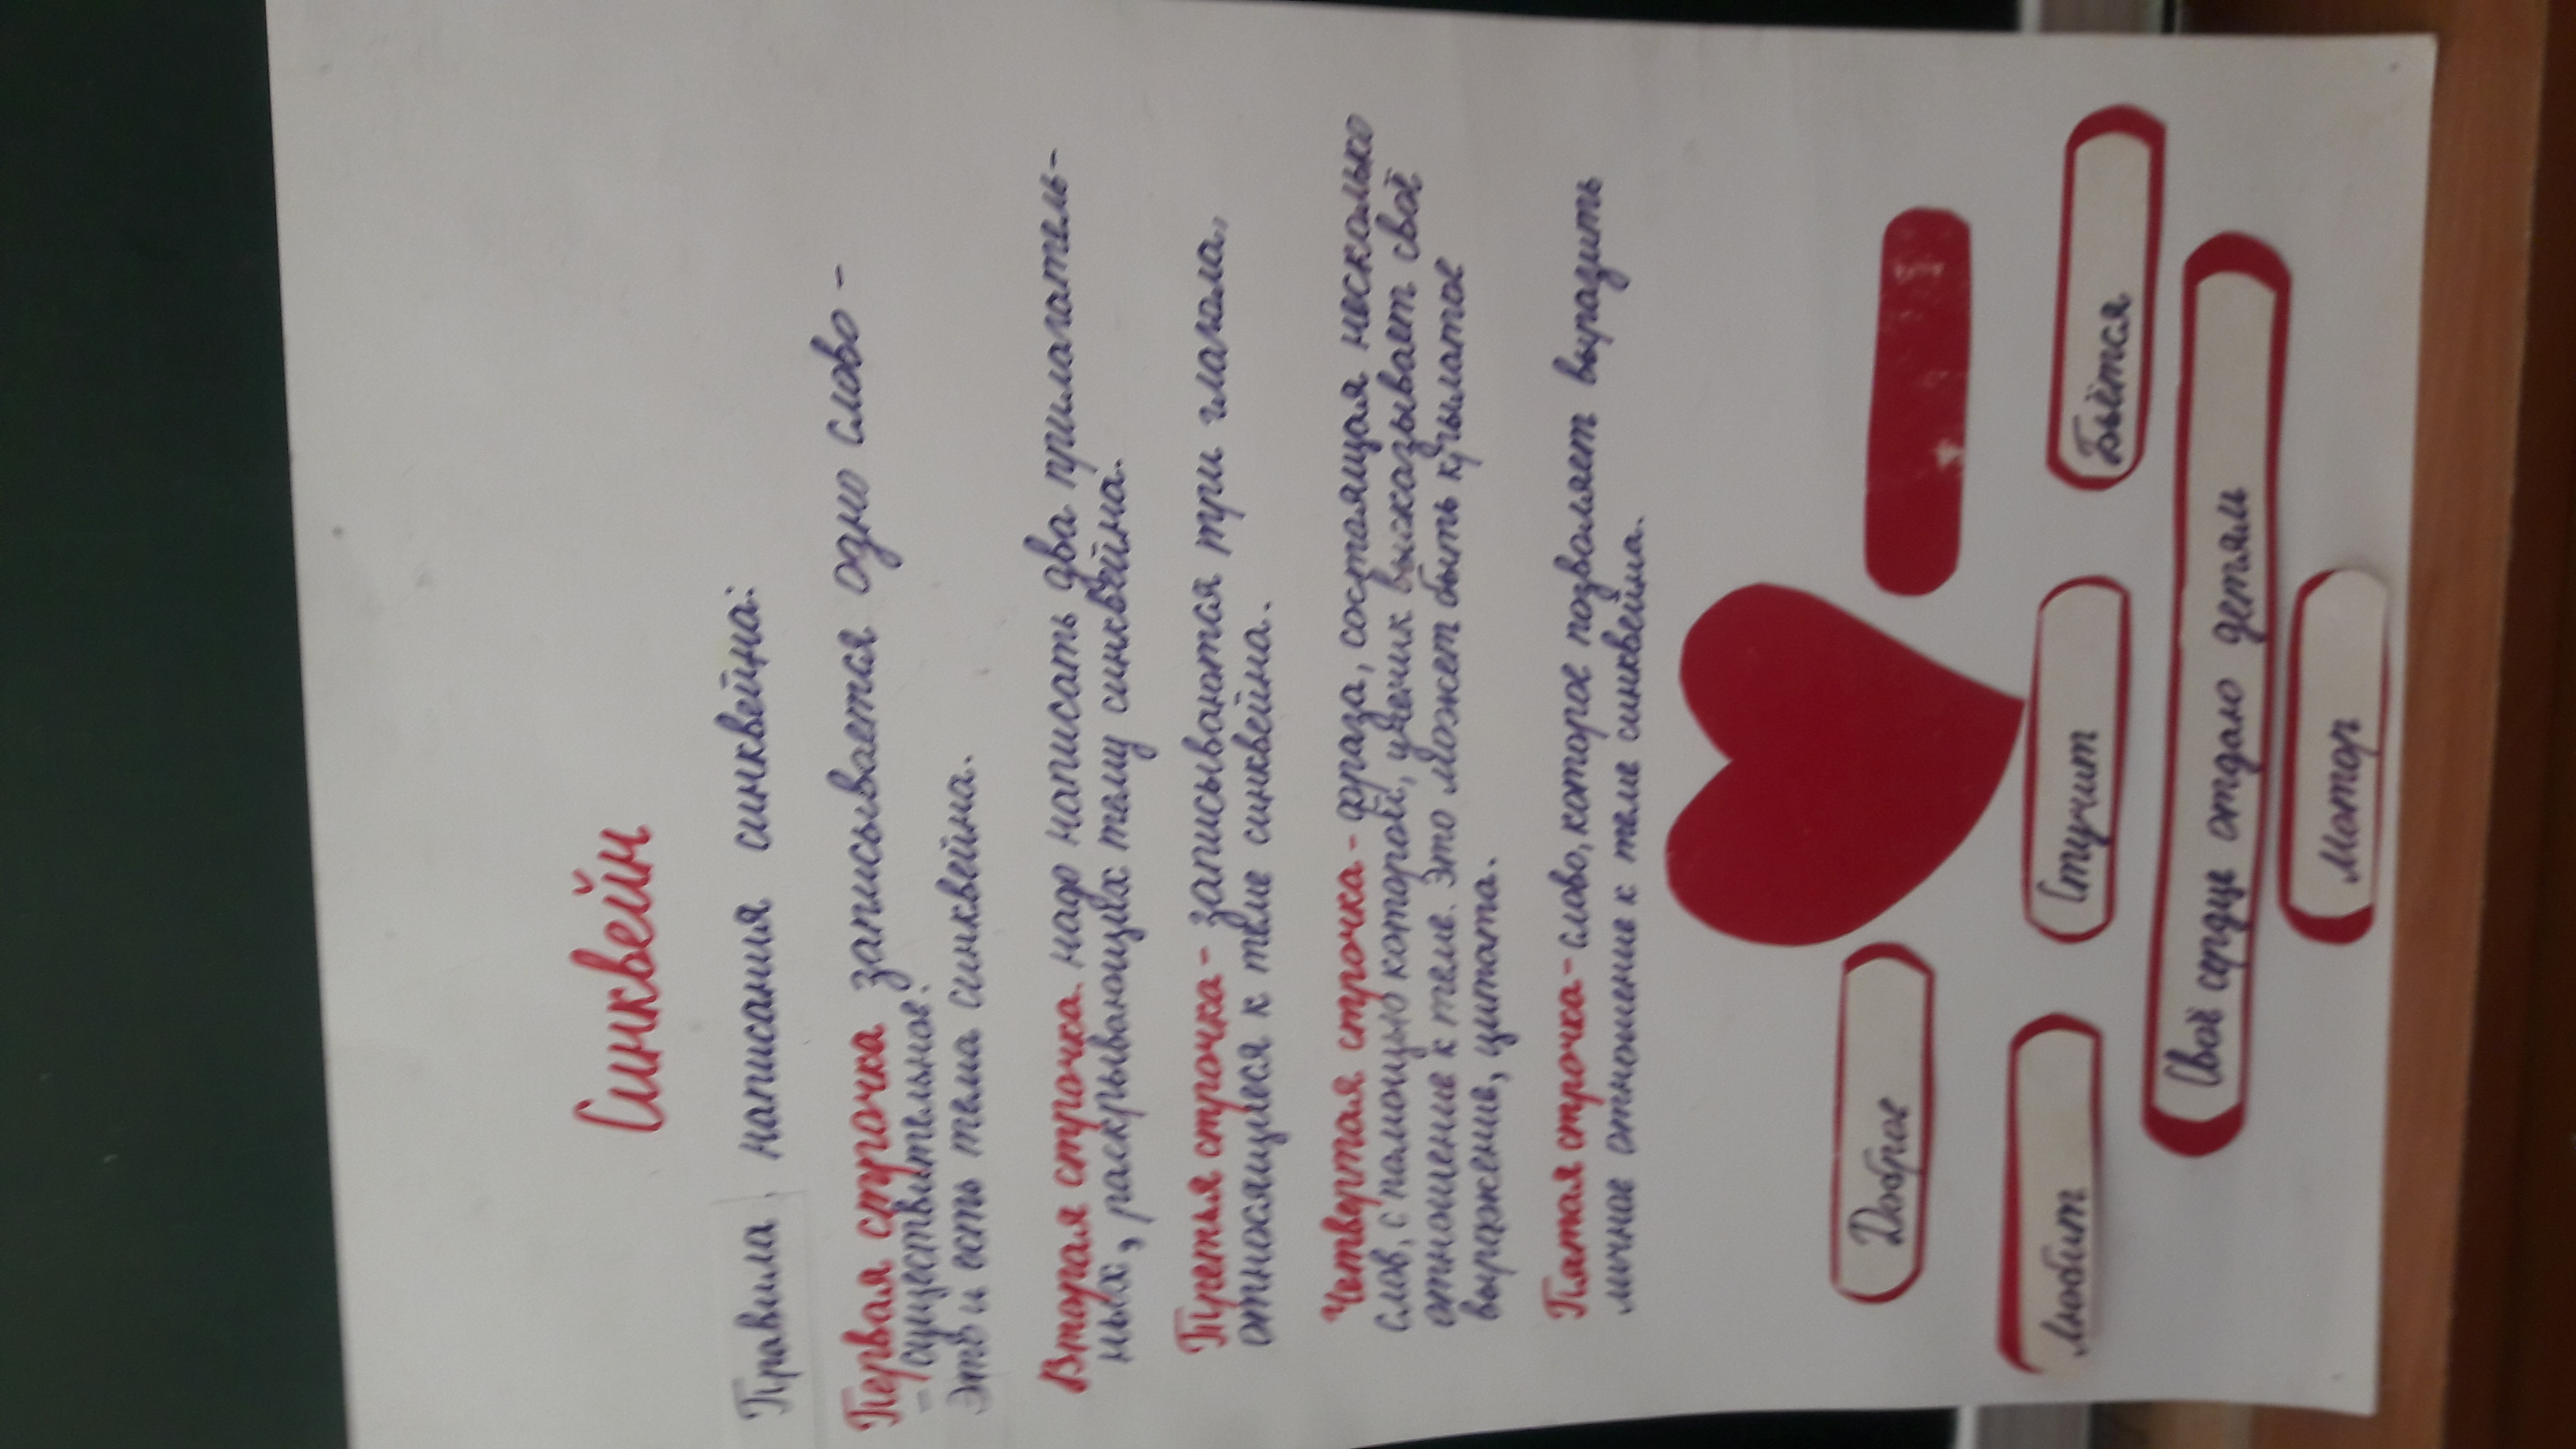 Синквейн
Правила написания синквейна:
Первая строчка записывается одно слово -
- существительное.
Это и есть тема синквейна.
Вторая строчка. надо написать два прилагатель-
ных, раскрывающих тему синквейна.
Третья строчка - записываются три глагола,
относящиеся к теме синквейна.
Четвертая строчка - фраза, состоящая несколько
слов, с помощью которой, ученик высказывает своё
отношение к теме. Это может быть крылатое
выражение, цитата.
Пятая строчка - слово, которое позволяет выразить
личное отношение к теме синквейна.
Доброе
Любит Стучит Бьётся
Своё сердце отдаю детям
Мотор